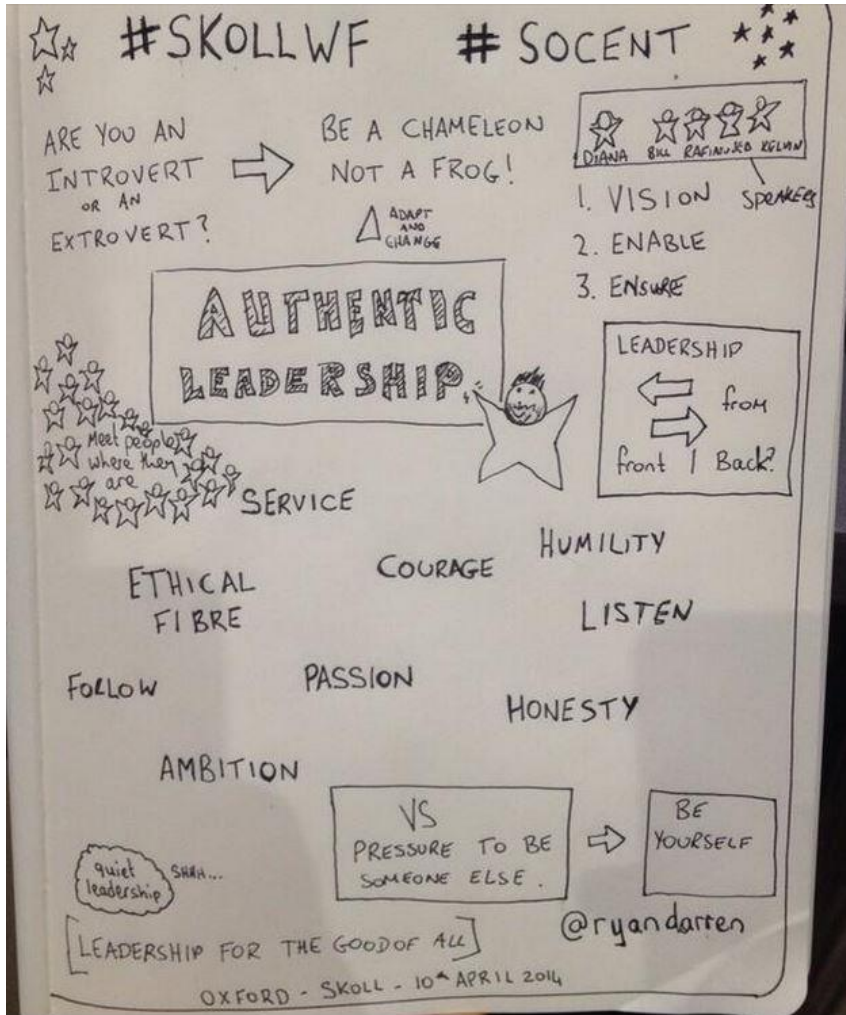 #SKOLLWF #SOCENT
ARE YOU AN
INTROVERT
OR AN
EXTROVERT?
BE A CHAMELEON
NOT A FROG!
ADAPT
AND
CHANGE
DIANA BILL RAFINUJED KELVIN
SPEAKERS
1. VISION
2. ENABLE
3. ENSURE
AUTHENTIC
LEADERSHIP
LEADERSHIP
from
front / Back?
Meet people
where they
are
SERVICE
HUMILITY
COURAGE
ETHICAL
FIBRE
LISTEN
FOLLOW
PASSION
HONESTY
AMBITION
VS
PRESSURE TO BE
SOMEONE ELSE.
BE
YOURSELF
quiet
leadership
SHHH...
@ryandarren
[LEADERSHIP FOR THE GOOD OF ALL]
OXFORD - SKOLL - 10th APRIL 2014